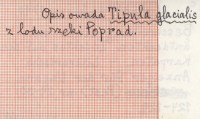 Opis owada Tipula glacialis
z lodu rzęki Poprad.